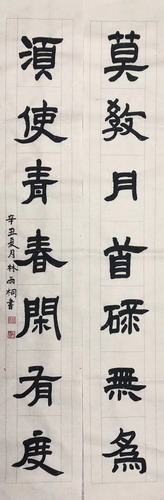 莫教月首碌無為
須使青春閑有度
辛丑夏月林雨桐書